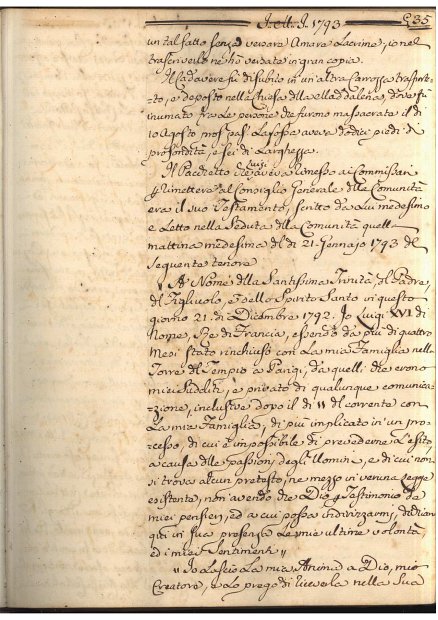 1793 635
un tal fatto senza versare Amare Lacrime; io nel
trascriverlo ne ho versate in gran copia.
Il Cadavere fù di subito in un'altra Carrozza trasport=
=to, e deposto nella Chiesa dlla Maddalena, dove fù
inumato fra le persone che furono massacrate il dì
10 Agosto La fossa aveva dodici piedi di
profondità, e sei di Larghezza.
Il Pacchetto che Luigi aveva rimesso ai Commissari
p rimettere al Consiglio Generale dlle Comunità
era il suo Testamento, scritto da Lui medesimo
e Letto nella Seduta dlla Comunità quella
mattina medesima del dì 21. Gennajo 1793 del
seguente tenore
"Al Nome dlla Santissima Trinità, del Padre,
del Figliuolo, e dello Spirito Santo in questo
giorno 21. di Dicembre 1792. Io Luigi XVI. di
Nome, Re di Francia, essendo da più di quattro
Mesi stato rinchiuso con La mia Famiglia nella
Torre del Tempio a Parigi, da quelli che erono
miei Sudditi, e privato di qualunque comunica=
=zione, inclusive dopo il dì 11 del corrente con
La mia Famiglia, di più implicato in un pro=
=cesso, di cui è impossibile di prevederne L'esito
a causa dlle passioni degli Uomini, e di cui non
si trova alcun pretesto, ne mezzo in veruna Legge
esistente, non avendo che Dio p Testimonio de
miei pensieri, ed a cui possa indirizzarmi, dichiaro
qui in sua presenza Le mie ultime volontà,
ed i miei Sentimenti "
"Io Lascio La mia Anima a Dio, mio
Creatore, e Lo prego di riceverla nella Sua